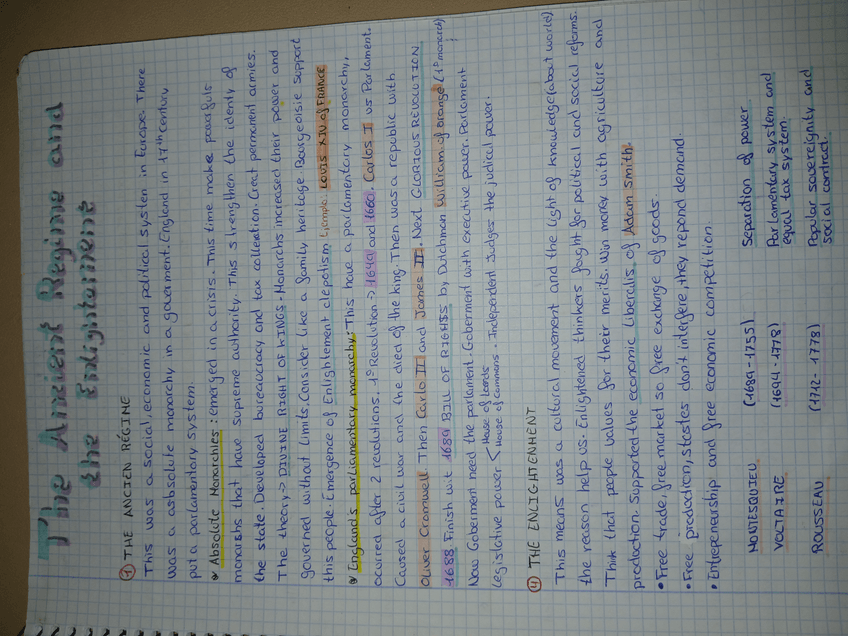 The Ancient Regime and
the Enlightement
1 THE ANCIEN RÉGIME
This was a social, economic and political system in Europe. There
was a asbsolute monarchy in a goverment. England in 17th century
put a parlamentary system.
Absolute Monarchies: emerged in a crisis. This time make powerfuls
monarshs that have supreme authority. This strengthen the identy of
the state. Developed bureaucracy and tax collection. Great permanent armies.
The theory → DIVINE RIGHT OF KINGS. Monarchs increased their power and
governed without limits. Consider like a family heritage Bourgeoisie support
this people. Emergence of Enlightement clepotism Example: LOUIS XIV of FRANCE
England's parliamentary monarchy: This have a parliamentary monarchy,
ocurred after 2 revolutions. 1º Revolution → 1640 and 1660. Carlos I vs Parlament.
Caused a civil war and the died of the king. Then was a republic with
Oliver Cromwell. Then Carlo II and James II. Next GLORIOUS REVOLUTION
1688 Finish wit 1689 BILL OF RIGHSS by Dutchman William of orange (1º monarch)
Now Goberment need the parlament. Goberment with executive power. Parlament
legislative power < House of Lords
House of commons. Independent Judges the judicial power.
4 THE ENLIGHTENMENT
This means was a cultural movement and the light of knowledge (about world)
the reason help us. Enlightened thinkers fought for political and social reforms.
Think that people values for their merits. Win money with agriculture and
production. Supported the economic liberalis of Adam Smith.
• Free trade, free market so free exchange of goods.
• Free production, stastes don't interfere, they repond demand.
• Entrepeneurship and free economic competition.
MONTESQUIEU (1689-1755) Separation of power
VOLTAIRE (1694-1778) Parlamentary system and
equal tax system.
ROUSSEAU (1712-1778) Popular sovereignity and
social contract.